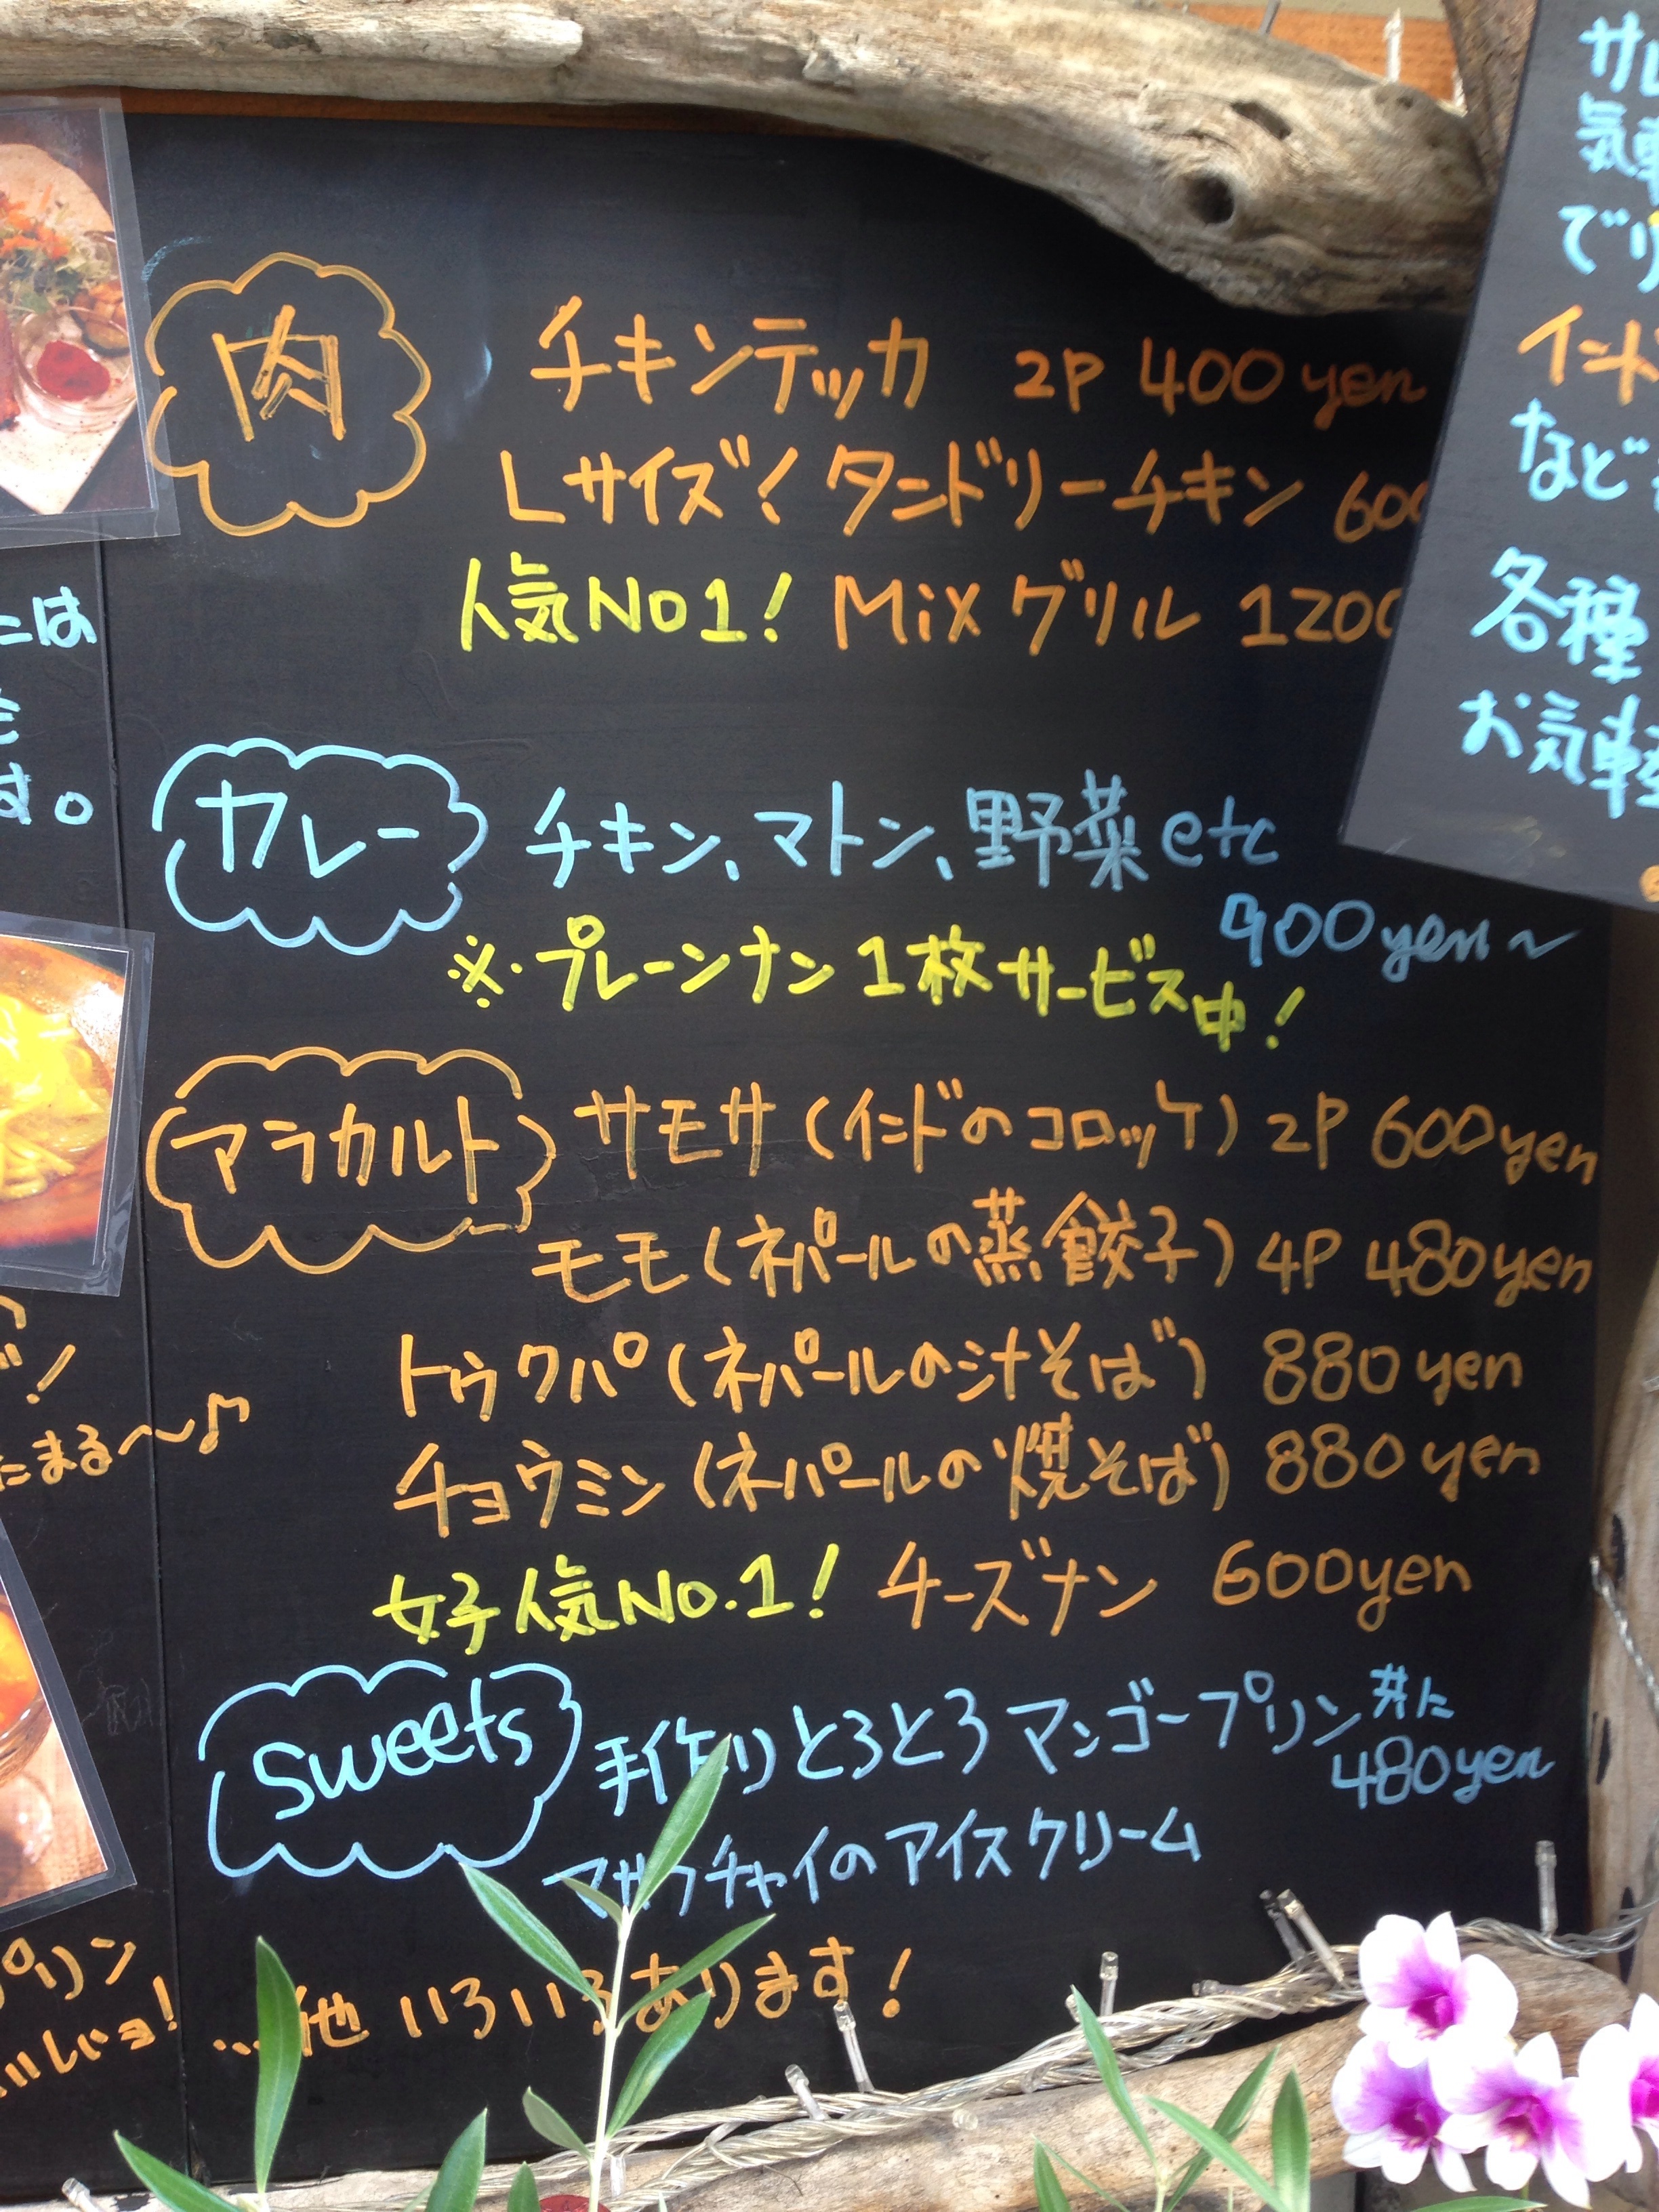 肉
チキンテッカ 2P 400yen
Lサイズ！タンドリーチキン 600
人気No1！Mixグリル 1200
カレー
チキン、マトン、野菜etc
900yen〜
※プレーンナン1枚サービス中！
アラカルト
サモサ（インドのコロッケ）2P 600yen
モモ（ネパールの蒸餃子）4P 480yen
トゥクパ（ネパールの汁そば）880yen
チョウミン（ネパールの焼そば）880yen
女子人気No.1！チーズナン 600yen
sweets
手作りとろとろマンゴープリン共に
480yen
マサラチャイのアイスクリーム
…他いろいろあります！
には
す。
たまる〜♪
プリン
サレ
気軽
でリ
インド
など
各種
お気軽